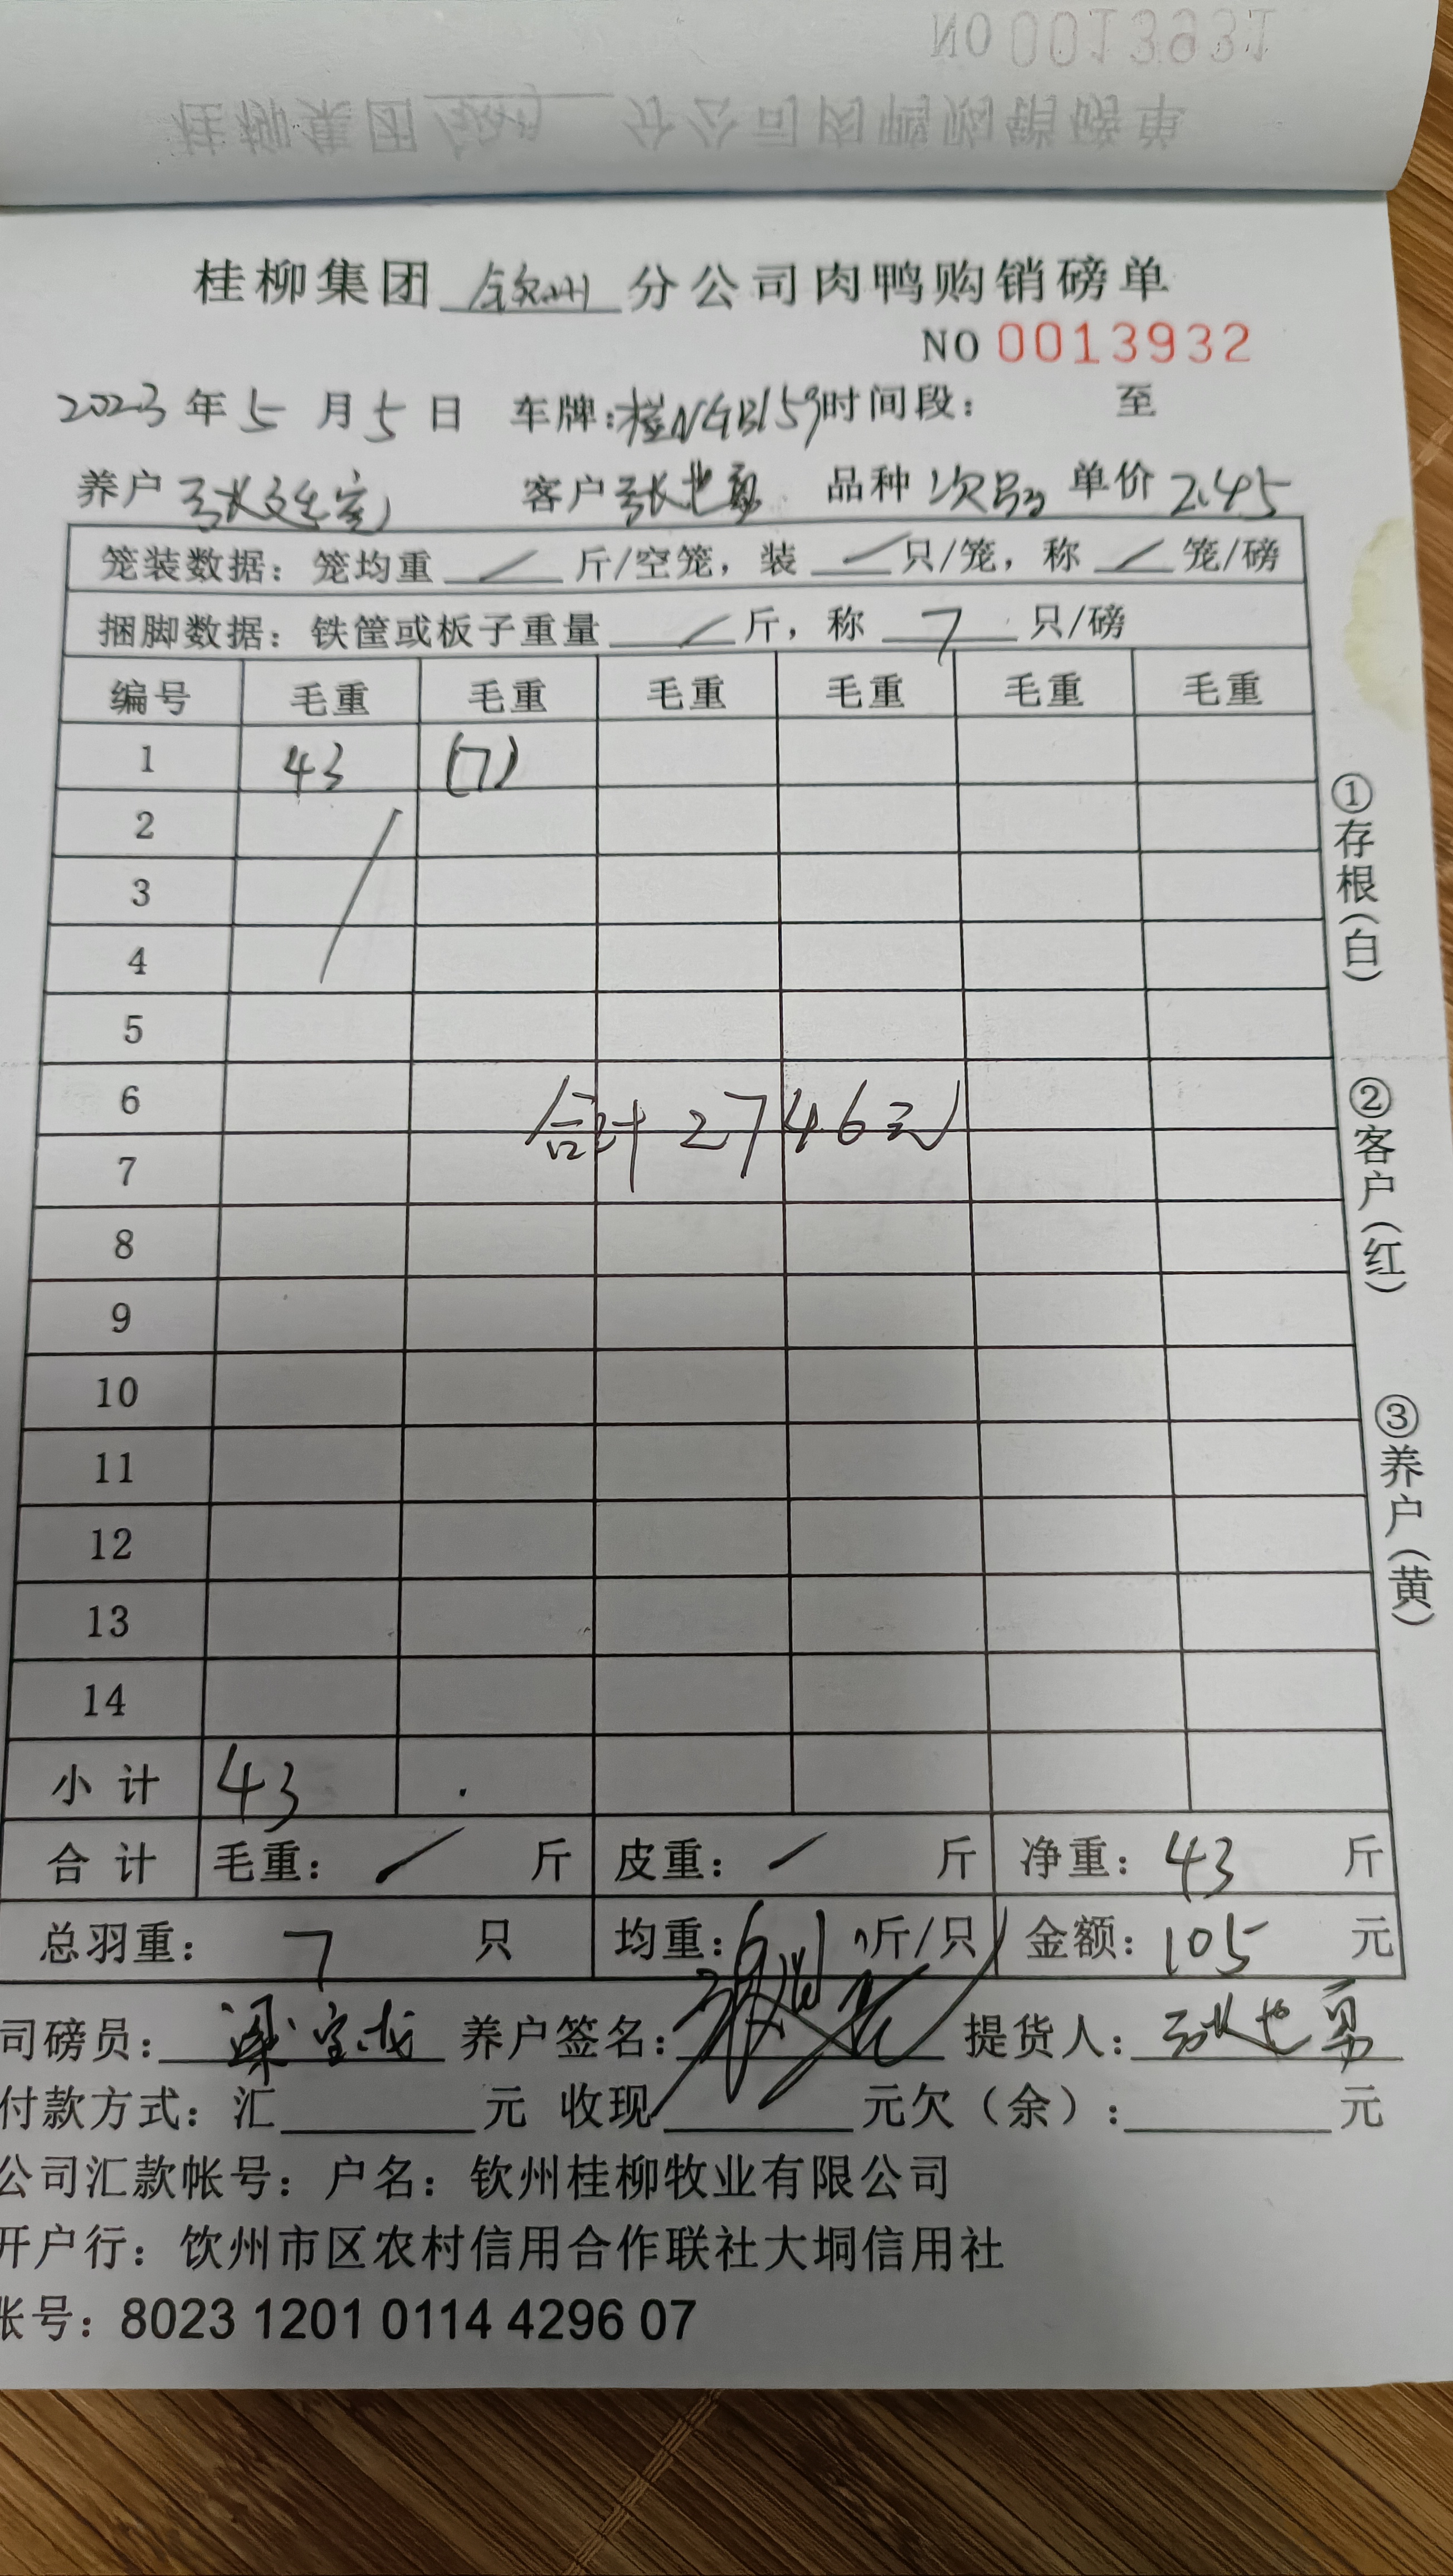 NO 0013931
桂柳集团 钦州 分公司肉鸭购销磅单
桂柳集团 钦州 分公司肉鸭购销磅单
NO 0013932
2023 年 5 月 5 日 车牌:桂NGB159 时间段: 至
养户 张廷宝 客户 张艳勇 品种 次鸭 单价 2.45
笼装数据: 笼均重 / 斤/空笼, 装 / 只/笼, 称 / 笼/磅
捆脚数据: 铁筐或板子重量 / 斤, 称 7 只/磅
编号 毛重 毛重 毛重 毛重 毛重 毛重
1 43 (7)
2
3
4
5
6
合计 2746元
7
8
9
10
11
12
13
14
小 计 43
合 计 毛重: / 斤 皮重: / 斤 净重: 43 斤
总羽重: 7 只 均重: 斤/只 金额: 105 元
司磅员: 梁宝成 养户签名: 提货人: 张艳勇
付款方式: 汇 元 收现 元欠（余）: 元
公司汇款帐号: 户名: 钦州桂柳牧业有限公司
开户行: 饮州市区农村信用合作联社大垌信用社
帐号: 8023 1201 0114 4296 07
①存根(白)
②客户(红)
③养户(黄)